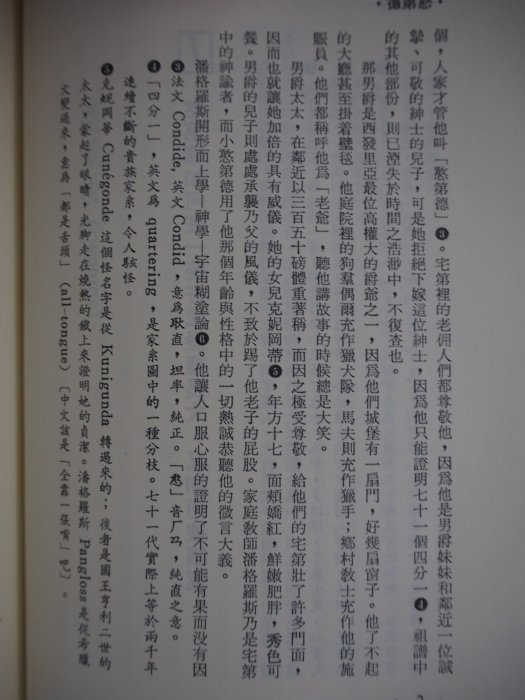 憨第德・
個，人家才管他叫「憨第德」❸。宅第裡的老佣人們都尊敬他，因爲他是男爵妹妹和鄰近一位誠
摯、可敬的紳士的兒子，可是她拒絕下嫁這位紳士，因爲他只能證明七十一個四分一❹，祖譜中
的其他部份，則已湮失於時間之浩渺中，不復查也。
那男爵是西發里亞最位高權大的爵爺之一，因爲他們城堡有一扇門，好幾扇窗子。他了不起
的大廳甚至掛着壁毯。他庭院裡的狗羣偶爾充作獵犬隊，馬夫則充作獵手；鄉村教士充作他的施
賑員。他們都稱呼他爲「老爺」，聽他講故事的時候總是大笑。
男爵太太，在鄰近以三百五十磅體重著稱，而因之極受尊敬，給他們的宅第壯了許多門面，
因而也就讓她加倍的具有威儀。她的女兒克妮岡蒂❺，年方十七，面頰嬌紅，鮮嫩肥胖，秀色可
餐。男爵的兒子則處處承襲乃父的風儀，不致於踢了他老子的屁股。家庭敎師潘格羅斯乃是宅第
中的神諭者，而小憨第德用了他那個年齡與性格中的一切熱誠恭聽他的微言大義。
潘格羅斯開形而上學—神學—宇宙糊塗論❻。他讓人口服心服的證明了不可能有果而没有因
❸法文 Condide, 英文 Condid，意爲耿直，坦率，純正。「憨」音ㄏㄢ，純直之意。
❹「四分一」，英文爲 quartering，是家系圖中的一種分枝。七十一代實際上等於兩千年
連續不斷的貴族家系，令人駭怪。
❺克妮岡蒂 Cunégonde 這個怪名字是從 Kunigunda 轉過來的；後者是國王亨利二世的
太太，蒙起了眼睛，光脚走在燒熱的鐵上來證明她的貞潔。潘格羅斯 Pangloss 是從希臘
文變過來，意爲「都是舌頭」(all-tongue)〔中文該是「全靠一張嘴」吧〕。